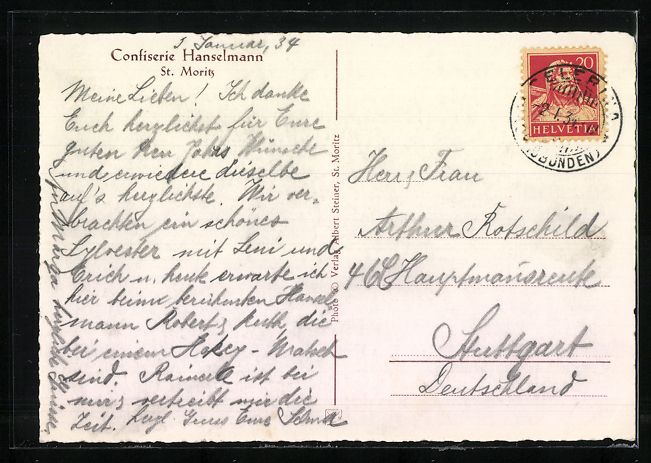 3 Januar, 34
Confiserie Hanselmann
St. Moritz
Meine Lieben! Ich danke
Euch herzlichst für Eure
guten Neu Jahrs Wünsche
und erwiedere dieselbe
auf's herzlichste. Wir ver-
brachten ein schönes
Sylvester mit Leni und
Erich u. heute erwarte ich
hier beim berühmten Hansel
mann Robert & Ruth, die
bei einem Hokey-Match
sind. Rainer ist bei
mir & vertreibt mir die
Zeit. herzl. Gruss Eure
Photo © Verlag Albert Steiner, St. Moritz
20
HELVETIA
Herr, Frau
Arthur Rotschild
46 Hauptmannsreute
Stuttgart
Deutschland